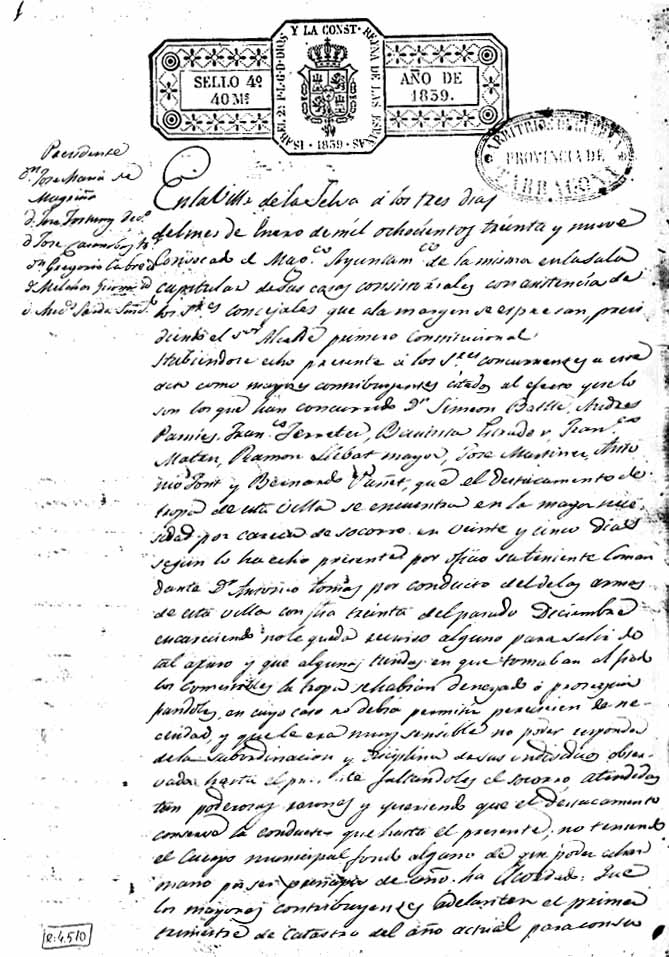 1
ISABEL 2ª P.L.G.D.DIOS Y LA CONST. REYNA DE LAS ESPAÑAS · 1839 ·
SELLO 4º
40 Ms
AÑO DE
1839.
ARBITRIOS DE
PROVINCIA DE
TARRAGONA
Presidente
Dn Jose Maria de
Magriña
D. Jose Fortuny
D Jose
Dn Gregorio Cabré
D. Melchor
Sardá
En la Villa de la Selva á los tres dias
del mes de Enero de mil ochocientos treinta y nueve
Convocado el Mago. Ayuntamto. de la misma en la sala
capitular de sus casas consistoriales con asistencia de
los Sres concejales que al margen se espresan, presi
diendo el Sor Alcalde primero Constitucional
Habiendose echo presente á los Sres concurrentes a este
acto como mayores contribuyentes citados al efecto y se lo
son los que han concurrido Dn Simeon Batlle, Andres
Pamies, Franco Ferreter, Bautista Estrader, Franco
Mateu, Ramon Llebat mayor, Jose Martinez, Anto
nio Font y Bernardo Pañet, que el destacamento de
tropa de esta villa se encuentra en la mayor nece
sidad por carecer de socorro en veinte y cinco dias
segun lo ha echo presente por oficio su teniente Coman
dante Dn Antonio Tomas por conducto del de las armas
de esta villa con fha treinta del pasado Diciembre
encareciendo no le queda recurso alguno para salir de
tal apuro y que algunas tiendas en que tomaban al fiado
los comestibles la tropa se habian denegado á proseguir
fiandoles, en cuyo caso no debia permitir pereciesen de ne
cesidad, y que le era muy sensible no poder responder
de la subordinacion y disciplina de sus individuos obser
vada hasta el presente faltandoles el socorro, atendidas
tan poderosas razones y queriendo que el destacamento
conserve la conducta que hasta el presente, no teniendo
el Cuerpo municipal fondo alguno de que poder echar
mano por ser principio de año, ha Acordado: Que
los mayores contribuyentes adelanten el primer
trimestre de catastro del año actual para
R:4.510